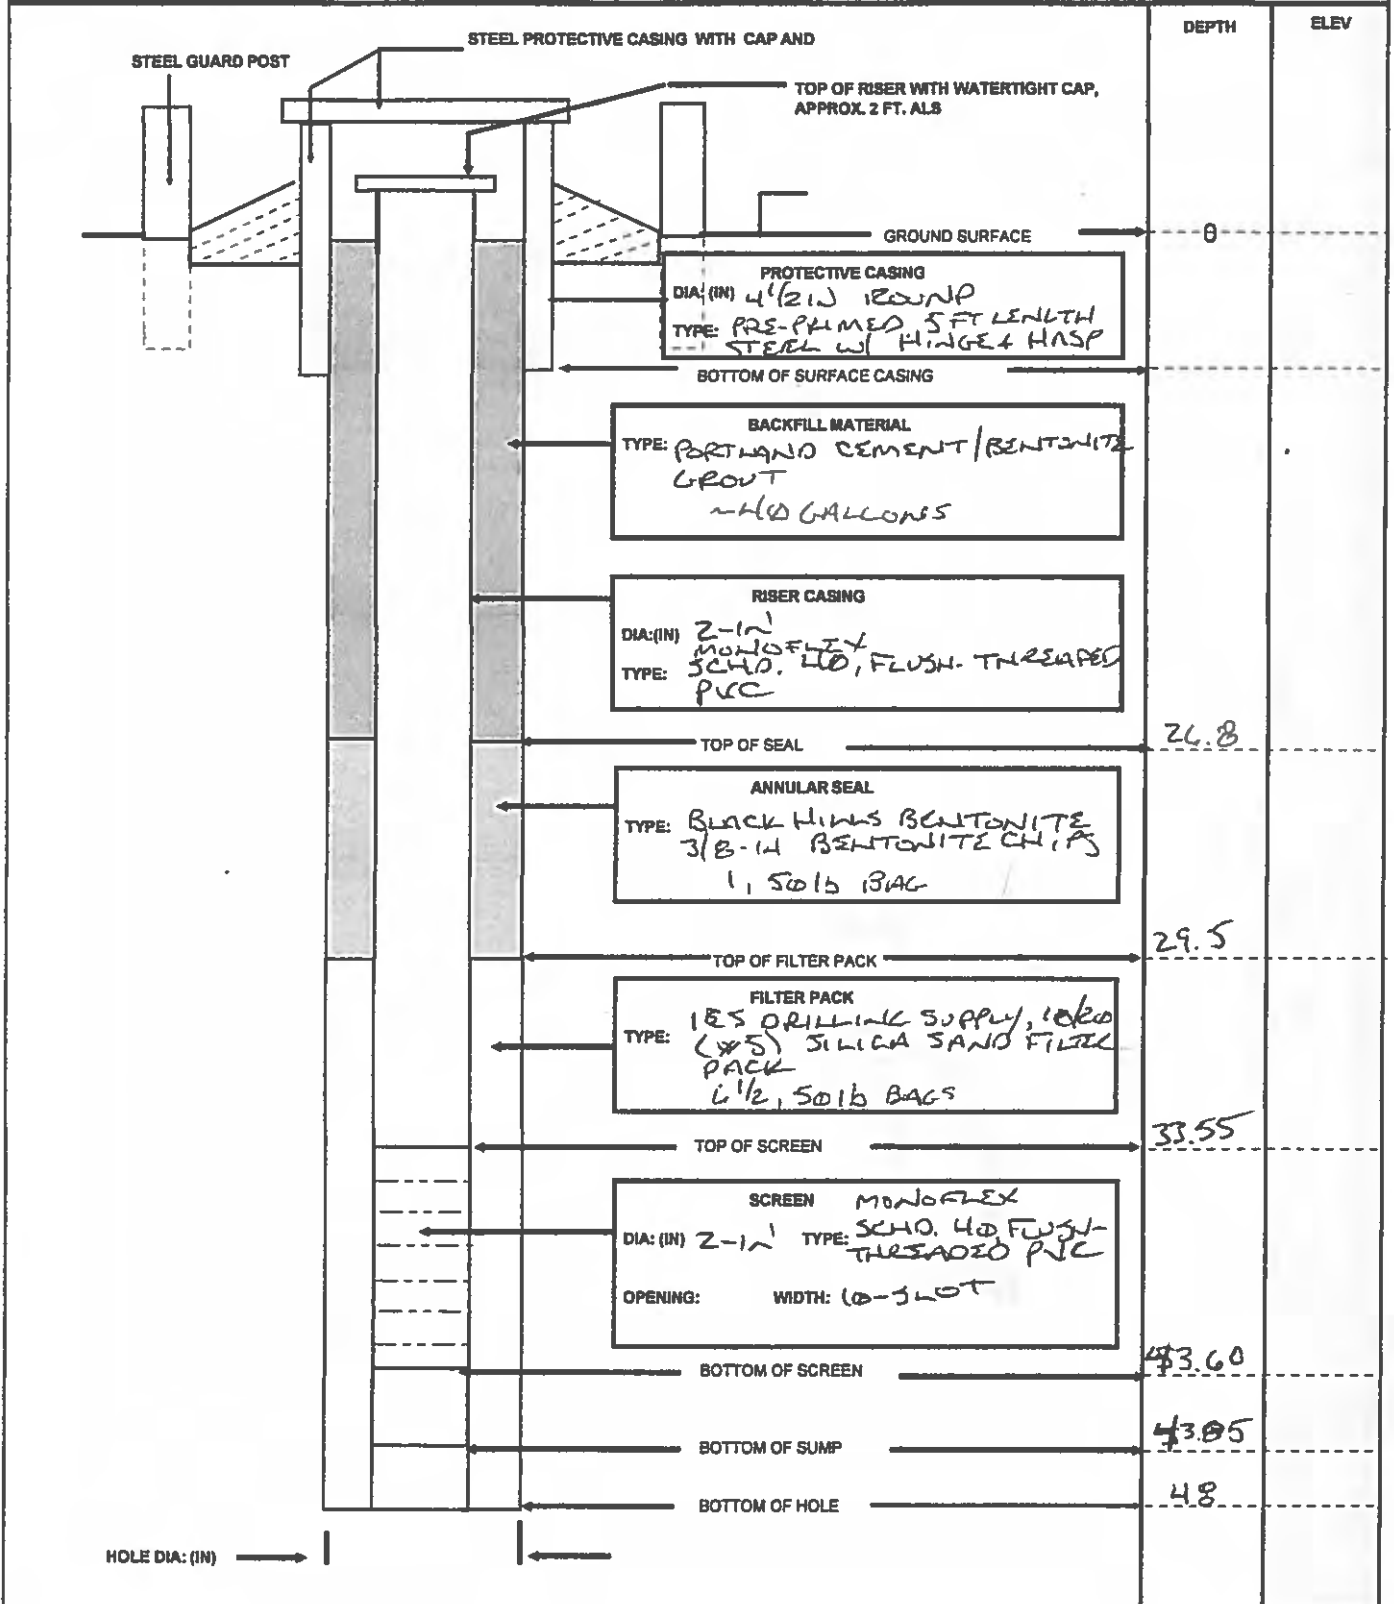 DEPTH
ELEV
STEEL PROTECTIVE CASING WITH CAP AND
STEEL GUARD POST
TOP OF RISER WITH WATERTIGHT CAP,
APPROX. 2 FT. ALS
GROUND SURFACE 0
PROTECTIVE CASING
DIA: (IN) 4 1/2 IN ROUND
TYPE: PRE-PRIMED, 5 FT LENGTH
STEEL W/ HINGE & HASP
BOTTOM OF SURFACE CASING
BACKFILL MATERIAL
TYPE: PORTLAND CEMENT/BENTONITE
GROUT
~40 GALLONS
RISER CASING
DIA:(IN) 2-IN
MONOFLEX
TYPE: SCHD. 40, FLUSH-THREADED
PVC
TOP OF SEAL 26.8
ANNULAR SEAL
TYPE: BLACK HILLS BENTONITE
3/8-IN BENTONITE CHIPS
1, 50 lb BAG
TOP OF FILTER PACK 29.5
FILTER PACK
DRILLING SUPPLY, 10/20
TYPE: (#5) SILICA SAND FILTER
PACK
6 1/2, 50 lb BAGS
TOP OF SCREEN 33.55
SCREEN MONOFLEX
DIA: (IN) 2-IN TYPE: SCHD. 40, FLUSH-
THREADED PVC
OPENING: WIDTH: 10-SLOT
BOTTOM OF SCREEN 43.60
BOTTOM OF SUMP 43.85
BOTTOM OF HOLE 48
HOLE DIA: (IN)